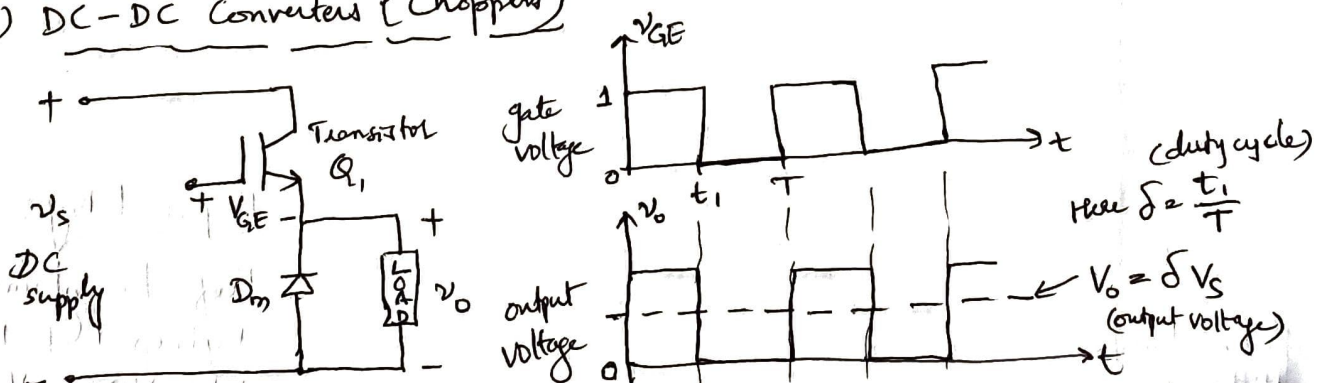 ) DC-DC Converters (Choppers)
+
Transistor
Q1
+ VGE -
vs
DC
supply
Dm
LOAD
+
vo
-
vGE
gate
voltage
1
0
t1
T
t
(duty cycle)
Here δ = t1/T
vo
output
voltage
0
t
Vo = δ Vs
(output voltage)